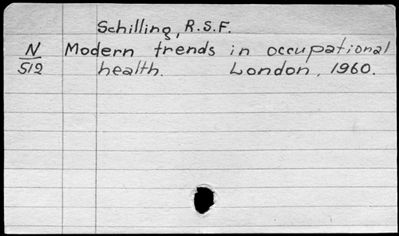 Schilling, R.S.F.
N Modern trends in occupational
512 health. London, 1960.